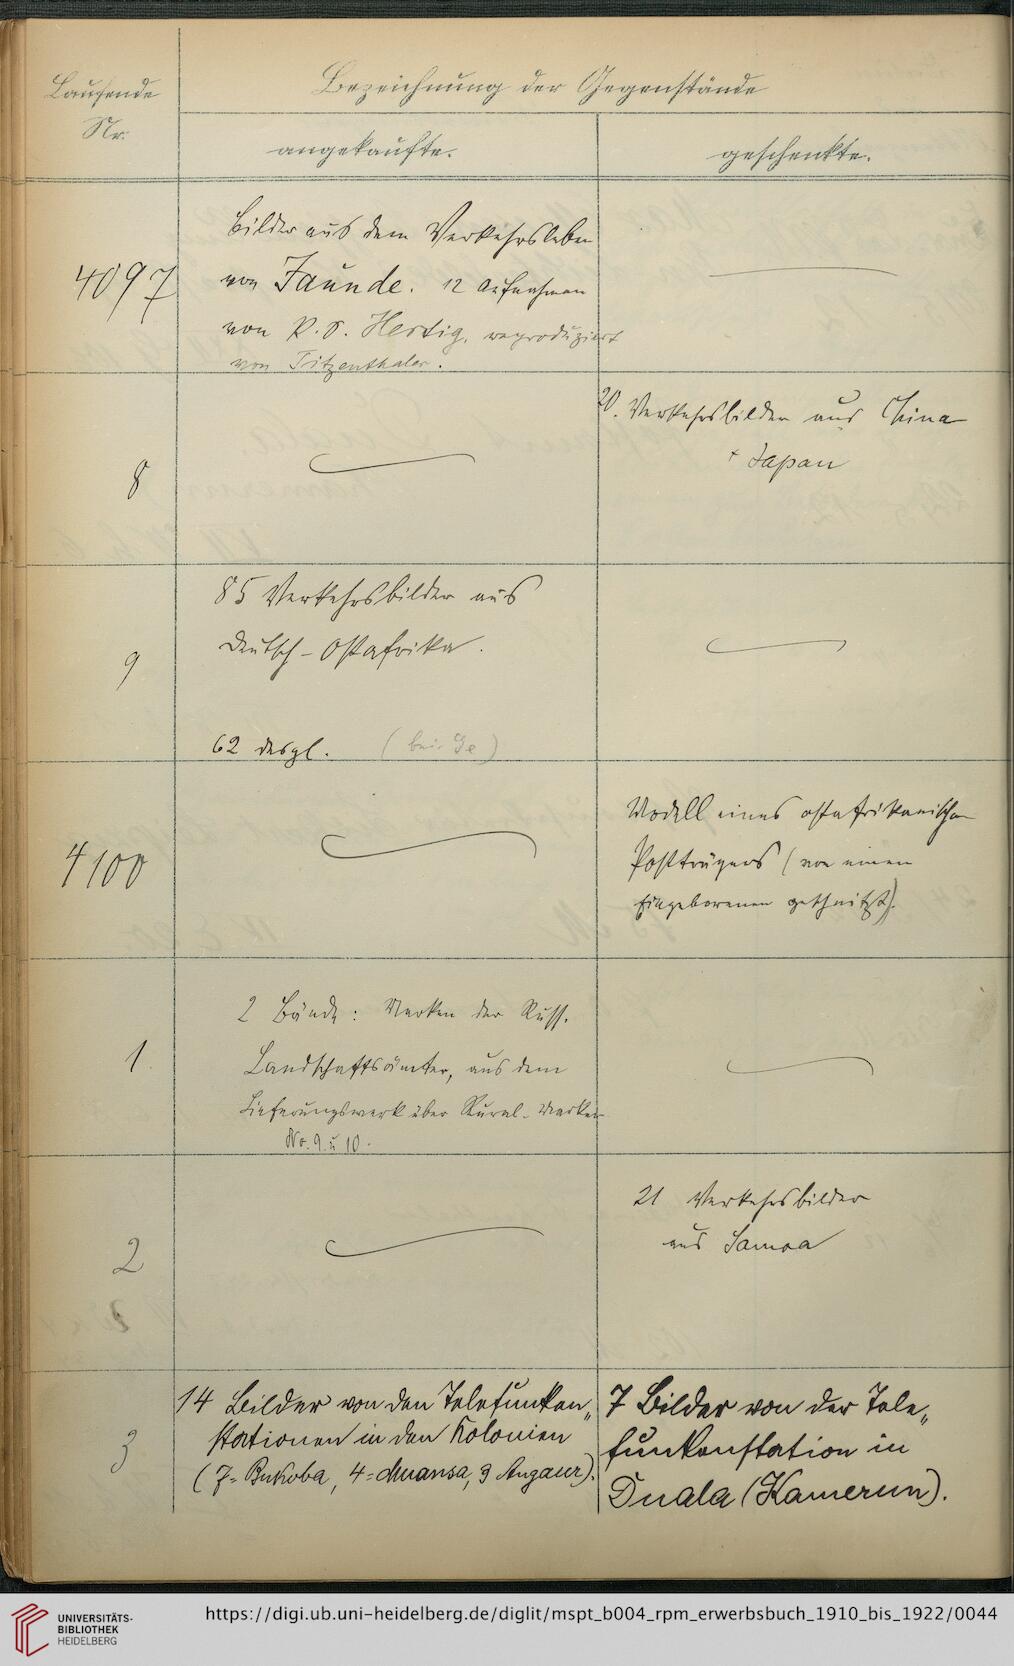 Laufende
Nr.
Bezeichnung der Gegenstände
angekaufte.
geschenkte.
4097
Bilder aus dem Verkehrsleben
von Jaunde. 12 Aufnahmen
von P. O. Hertig, reproduziert
von Titzenthaler.
8
20. Verkehrsbilder aus China
+ Japan
9
85 Verkehrsbilder aus
Deutsch-Ostafrika.
62 desgl. (bei Ge)
4100
Modell eines ostafrikanischen
Postträgers (von einem
Eingeborenen geschnitzt).
1
2 Bände: Marken der Russ.
Landschaftsämter, aus dem
Lieferungswerk über Rural-Marken
No. 9 u 10.
2
21 Verkehrsbilder
aus Samoa
3
14 Bilder von den Telefunken„
stationen in den Kolonien
(7 = Bukoba, 4 = Muansa, 3 Angaur).
7 Bilder von der Tele„
funkenstation in
Duala (Kamerun).
UNIVERSITÄTS-
BIBLIOTHEK
HEIDELBERG
https://digi.ub.uni-heidelberg.de/diglit/mspt_b004_rpm_erwerbsbuch_1910_bis_1922/0044